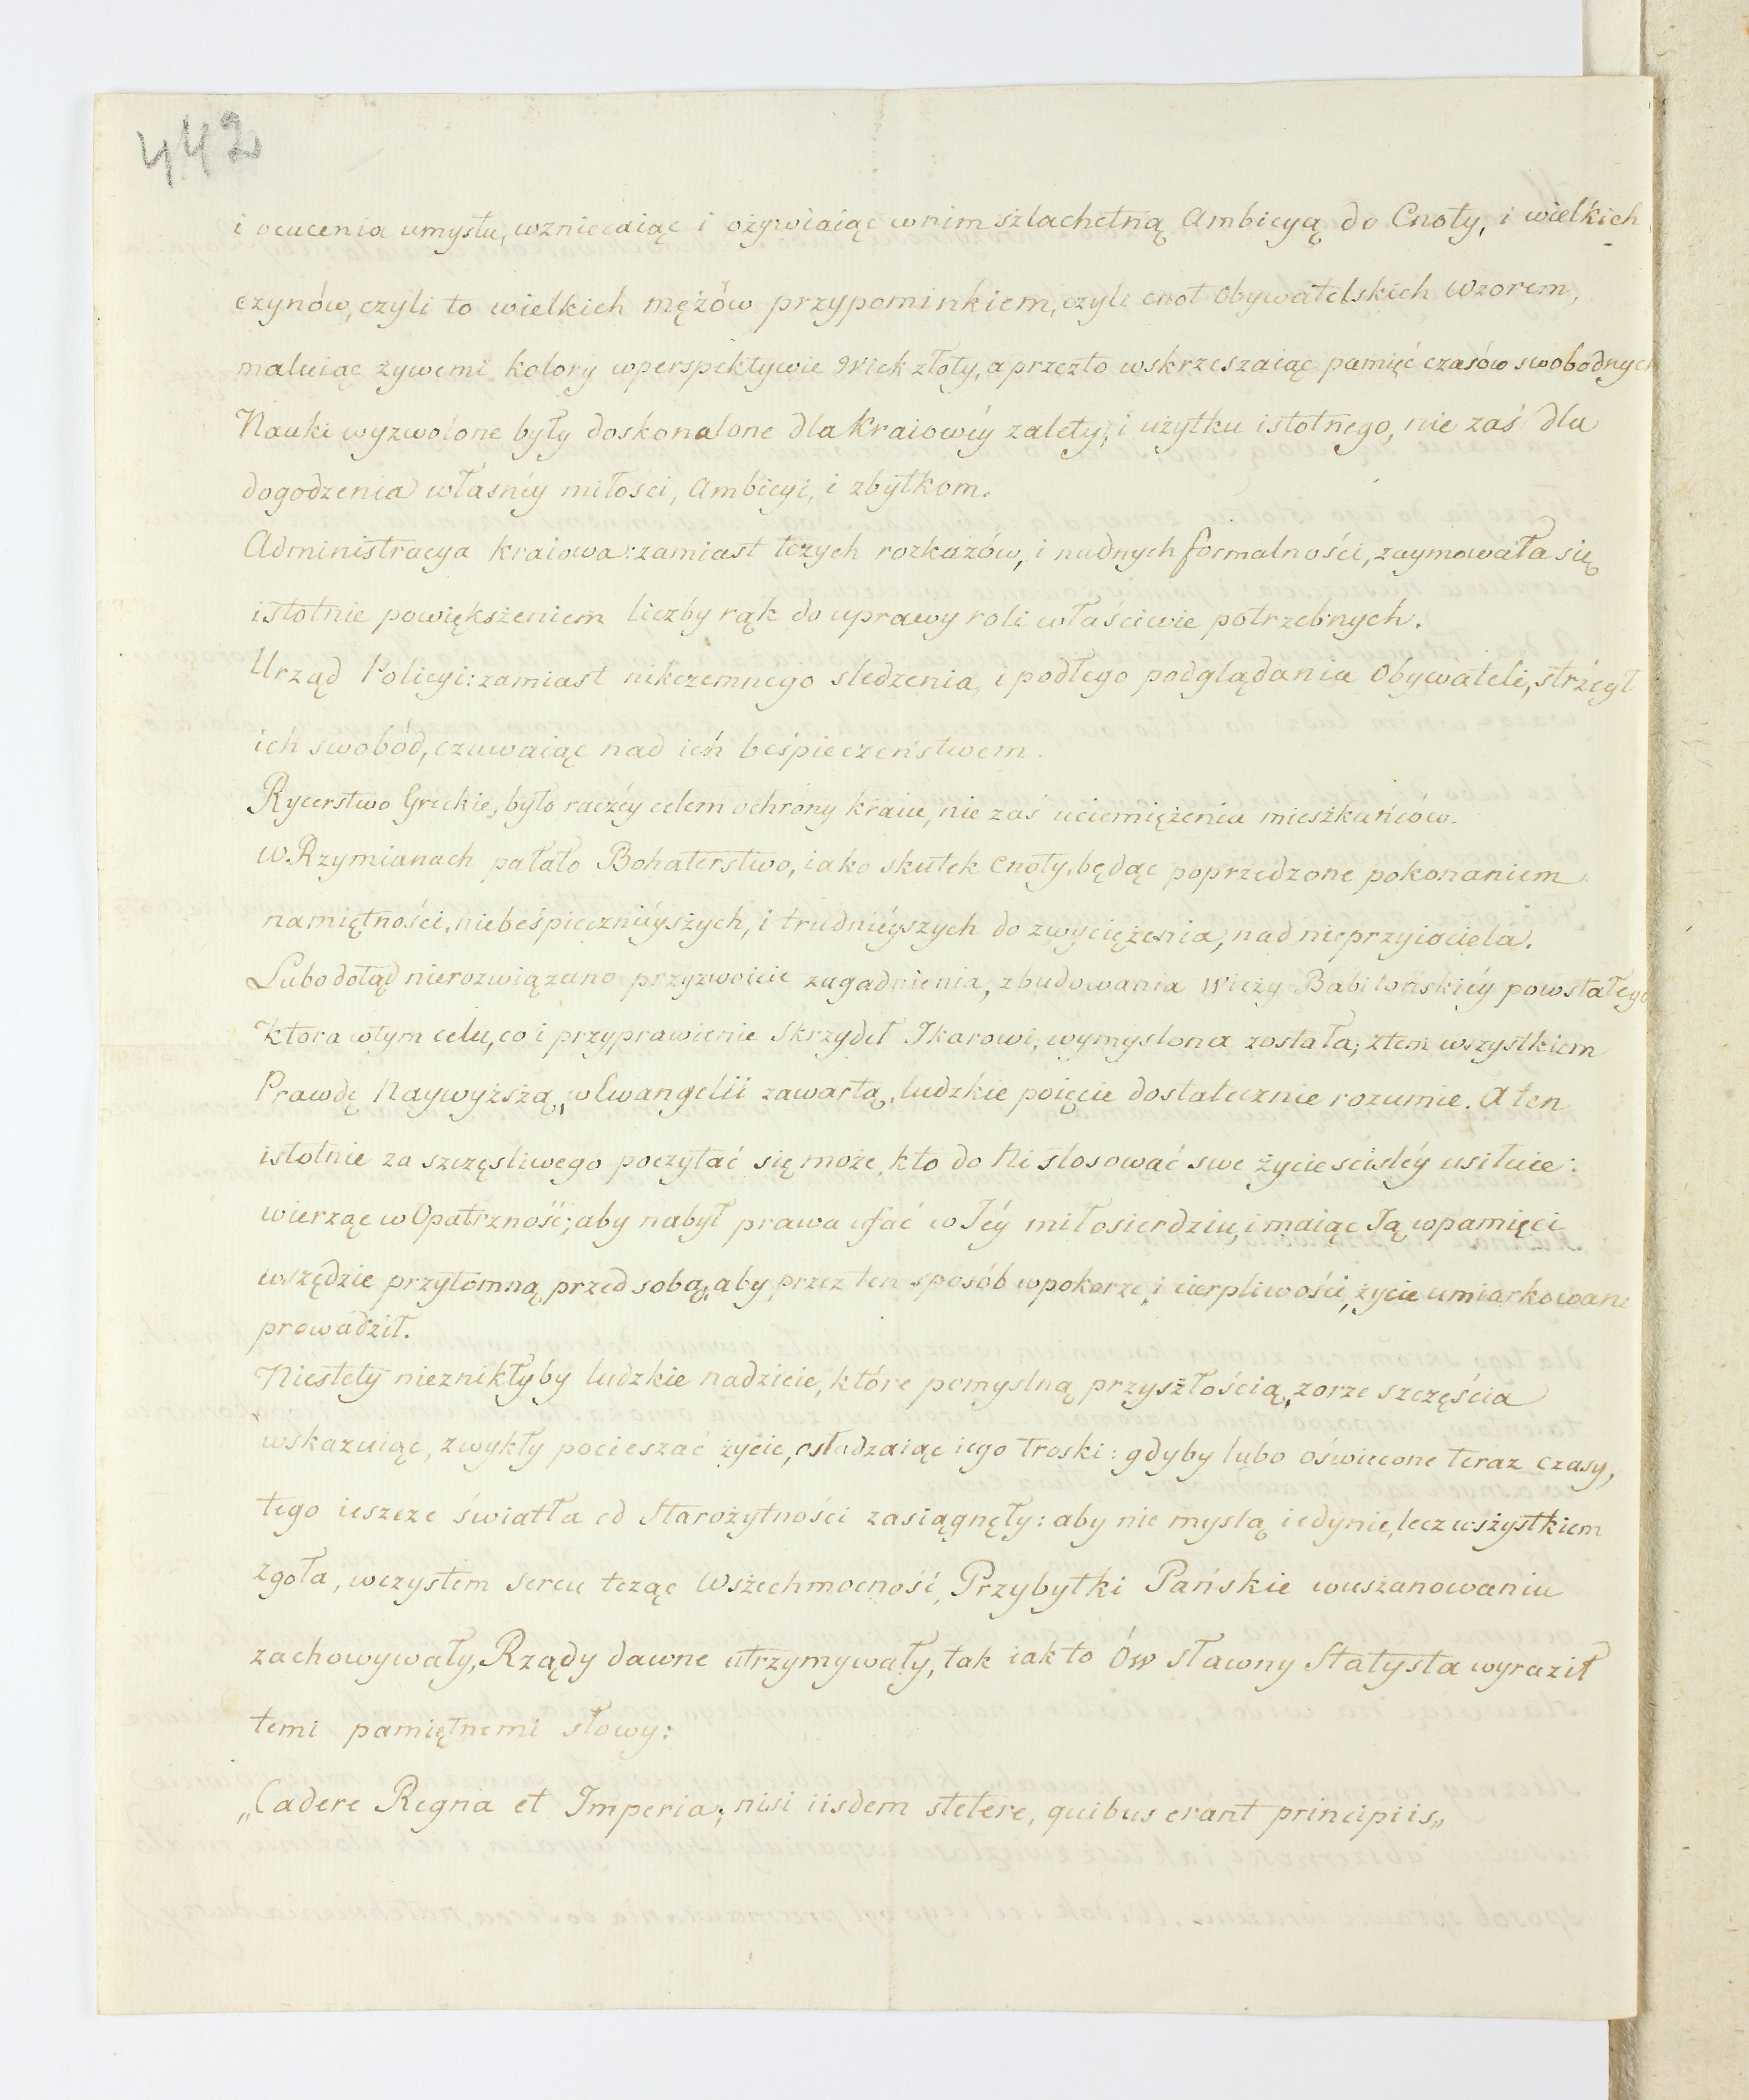 442
i ocucenia umysłu, wzniecaiąc i ożywiaiąc wnim szlachetną Ambicyą do Cnoty, i wielkich
czynów, czyli to wielkich mężów przypominkiem, czyli cnot Obywatelskich Wzorem,
maluiąc żywemi kolory wperspektywie Wiek złoty, a przezto wskrzeszaiąc pamięć czasów swobodnych
Nauki wyzwoione były doskonalone dla Kraiowéy zalety, i użytku istotnego, nie zaś dla
dogodzenia własney miłosci, Ambicyi, i zbytkom.
Administracya kraiowa: zamiast tczych rozkazów, i nudnych formalności, zaymowała się
istotnie powiększeniem liczby rąk do uprawy roli właściwie potrzebnych.
Urząd Policyi: zamiast nikczemnego sledzenia, i podłego podglądania Obywateli, strzegł
ich swobód, czuwaiąc nad ich beśpieczeństwem.
Rycerstwo Greckie, było raczéy celem ochrony kraiu, nie zaś uciemiężenia mieszkańców.
w Rzymianach pałało Bohaterstwo, iako skutek Cnoty, będąc poprzedzone pokonaniem
namiętności, niebeśpieczniéyszych, i trudniéyszych do zwyciężenia, nad nieprzyiaciela.
Lubo dotąd nierozwiązano przyzwoicie zagadnienia, zbudowania Wieży Babilońskiéy powstałego
Ktora wtym celu, co i przyprawienie Skrzydeł Ikarowi, wymyslona została; ztem wszystkiem
Prawdę Naywyższą, w Ewangelii zawartą, ludzkie poięcie dostatecznie rozumie. A ten
istotnie za szczęsliwego poczytać się może, kto do Ni stosować swe życie scisléy usiłuie:
wierząc w Opatrzność; aby nabył prawa ufać w Jéy miłosierdziu, i maiąc Ją wpamięci
wszędzie przytomną przed sobą, aby przez ten sposób wpokorze, i cierpliwości, życie umiarkowane
prowadził.
Niestety nieznikłyby ludzkie nadzieie, które pomyslną przyszłością, zorze szczęścia
wskazuiąc, zwykły pocieszać życie, osładzaiąc iego troski: gdyby lubo oświecone teraz czasy,
tego ieszcze światła od Starożytności zasiągnęły: aby nie myslą iedynie, lecz wszystkiem
zgoła, wczystem sercu tcząc Wszechmocność, Przybytki Pańskie wuszanowaniu
zachowywały, Rządy dawne utrzymywały, tak iak to Ów sławny Statysta wyraził
temi pamiętnemi słowy:
„Cadere Regna et Imperia; nisi iisdem stetere, quibus erant principiis„